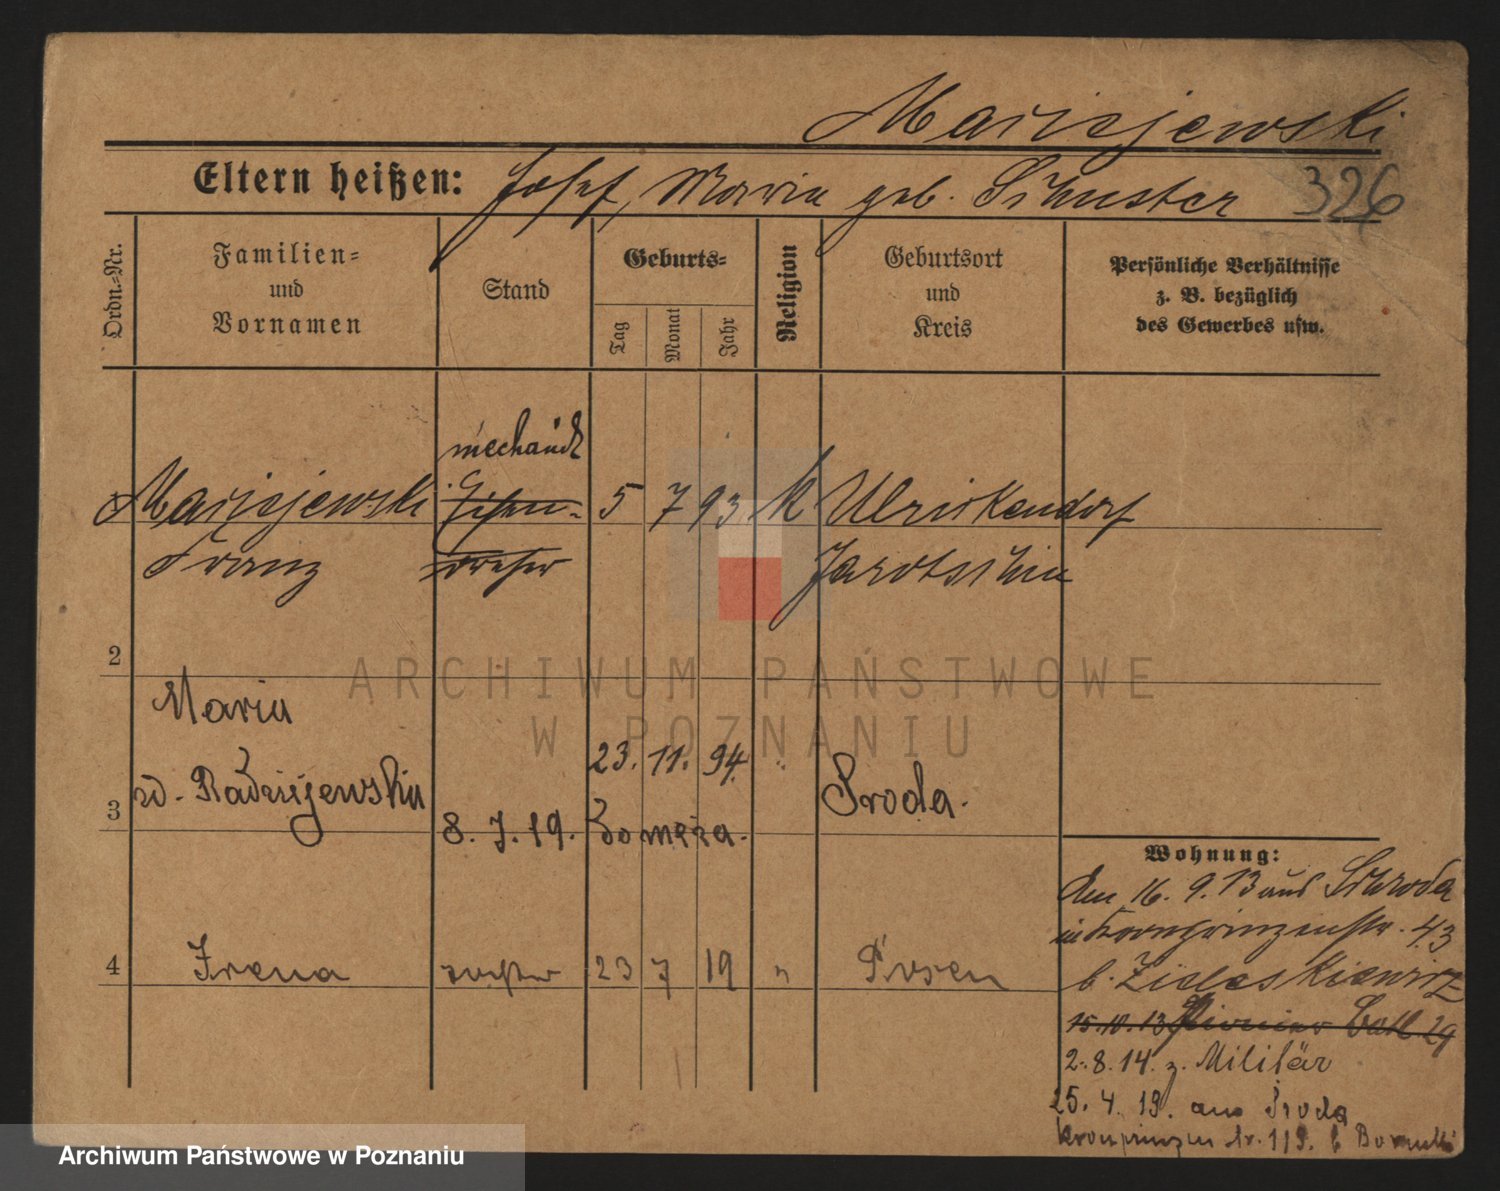 Marisejewski
Eltern heißen: Josef, Maria geb. Schuster 326
Ordn.=Nr.
Familien=
und
Vornamen
Stand
Geburts=
Tag
Monat
Jahr
Religion
Geburtsort
und
Kreis
Persönliche Verhältnisse
z. B. bezüglich
des Gewerbes usw.
mechanik
Eisen-
Franz dreher
5 7 93 k Ulrikendorf
Jarotschin
2
Maria
23. 11. 94. "
3 Środa.
8. 7. 19. Łomęża.
4 Irena tochter 23 7 19 " Posen
Wohnung:
Am 16. 9. 13 aus Schroda
in Kronprinzenstr. 43
b. Zielaskiewicz
15.10.13 Pionier Batl. 29
2.8.14. z. Militär
25. 4. 19. aus Środa
Kronprinzen str. 119. b
ARCHIWUM PAŃSTWOWE
W POZNANIU
Archiwum Państwowe w Poznaniu